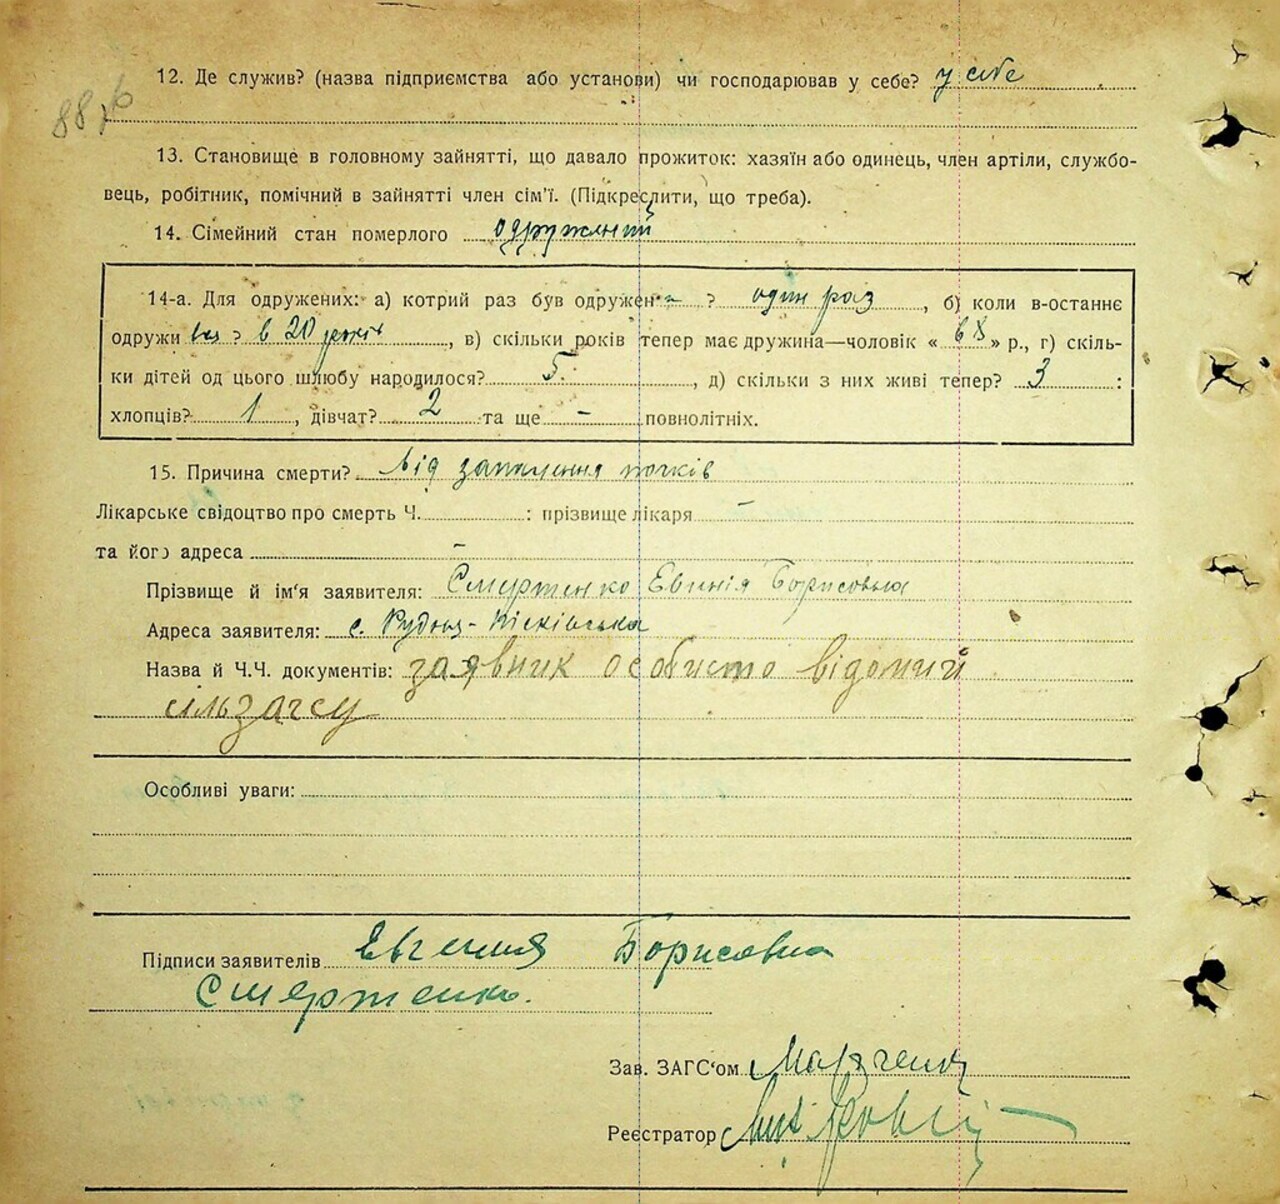 12. Де служив? (назва підприємства або установи) чи господарював у себе? у себе
88
13. Становище в головному зайнятті, що давало прожиток: хазяїн або одинець, член артіли, службо-
вець, робітник, помічний в зайнятті член сім'ї. (Підкреслити, що треба).
14. Сімейний стан померлого одружений
14-а. Для одружених: а) котрий раз був одружен ? один раз, б) коли в-останнє
одружи вся ? в 20 років, в) скільки років тепер має дружина—чоловік « 68 » р., г) скіль-
ки дітей од цього шлюбу народилося? 5. , д) скільки з них живі тепер? 3 :
хлопців? 1 , дівчат? 2 та ще – повнолітніх.
15. Причина смерти? від запалення почків
Лікарське свідоцтво про смерть Ч. : прізвище лікаря –
та його адреса –
Прізвище й ім'я заявителя: Смертенко Евгенія Борисовна
Адреса заявителя: с.
Назва й Ч.Ч. документів: заявник особисто відомий
сільзагсу
Особливі уваги:
Підписи заявителів Евгения Борисовна
Смертенко.
Зав. ЗАГС'ом
Реєстратор